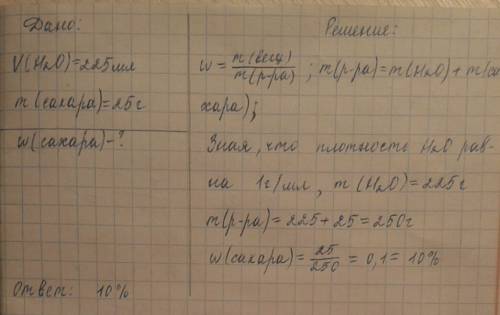 Дано:
V(H₂O)=225мл
m(сахара)=25г
w(сахара)-?
Решение:
w = m(вещ)/m(р-ра) ; m(р-ра)=m(H₂O)+m(са
хара);
Зная, что плотность H₂O рав-
на 1г/мл, m(H₂O)=225г
m(р-ра)=225+25=250г
w(сахара)= 25/250 = 0,1 = 10%
Ответ: 10%